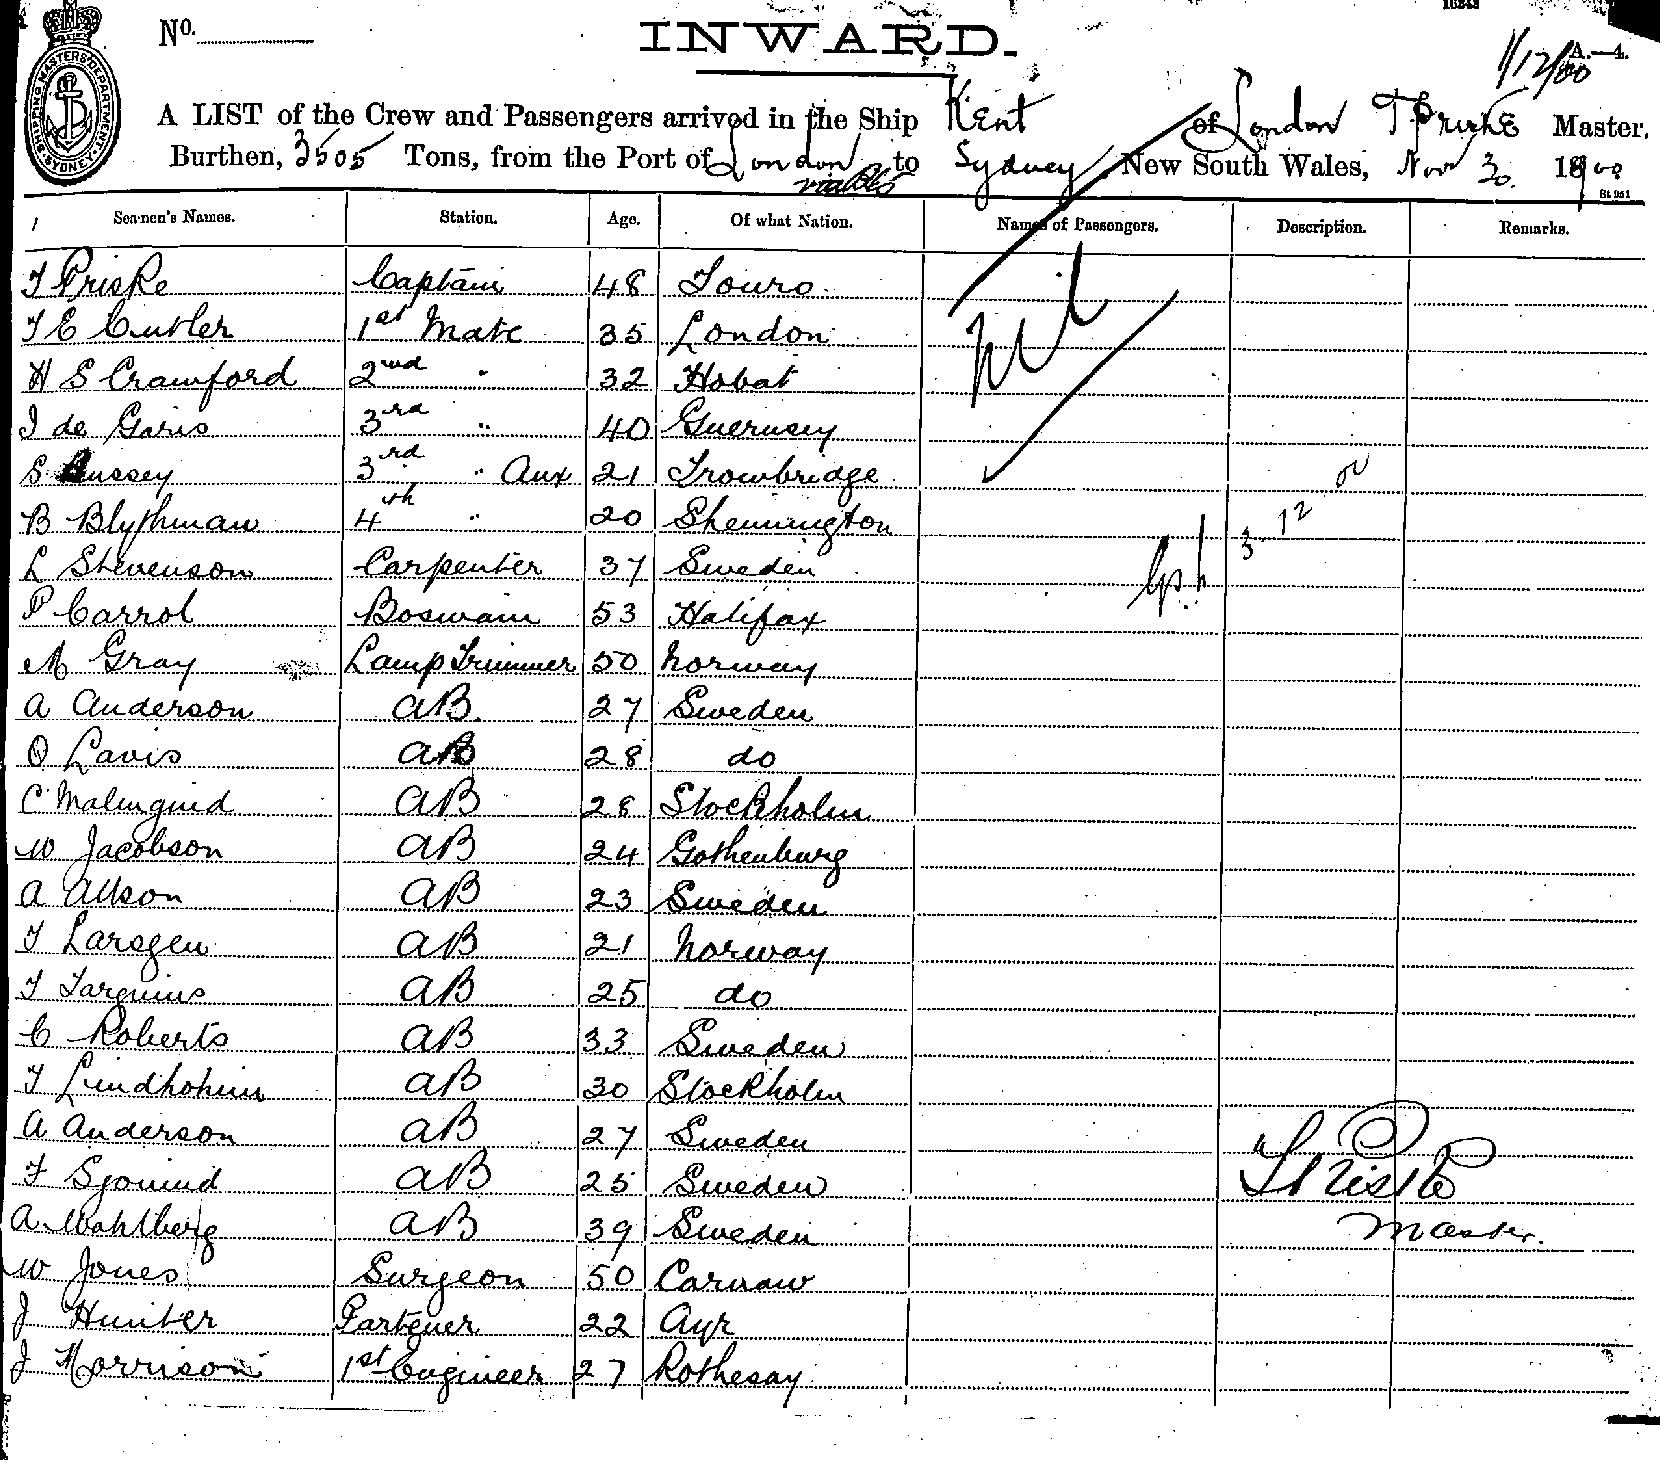 No.
INWARD.
A.—4.
1/12/00
SHIPPING MASTER'S DEPARTMENT SYDNEY
A LIST of the Crew and Passengers arrived in the Ship Kent of London T Priske Master,
Burthen, 3505 Tons, from the Port of London to Sydney New South Wales, Nov 30. 1900
via
Seamen's Names. Station. Age. Of what Nation. Names of Passengers. Description. Remarks.
T Priske Captain 48 Touro
T E Cutler 1st Mate 35 London
Nil
H S Crawford 2nd " 32 Hobat
J de Garis 3rd " 40 Guernsey
S Bussey 3rd " Aux 21 Trowbridge
B Blythman 4th " 20 Shennington
3. 12
L Stevenson Carpenter 37 Sweden
P Carrol Boswain 53 Halifax
M Gray Lamp Trimmer 50 Norway
A Anderson AB. 27 Sweden
O Lavis AB 28 do
C Malmquid AB 28 Stockholm
W Jacobson AB 24 Gothenburg
A Allson AB 23 Sweden
T Larsgen AB 21 Norway
T AB 25 do
C Roberts AB 33 Sweden
T Lindhohm AB 30 Stockholm
A Anderson AB 27 Sweden
T Priske
T AB 25 Sweden
A Wahlberg AB 39 Sweden
Master.
W Jones Surgeon 50 Carnaw
J Hunter Partener 22 Ayr
J Morrison 1st Engineer 27 Rothesay